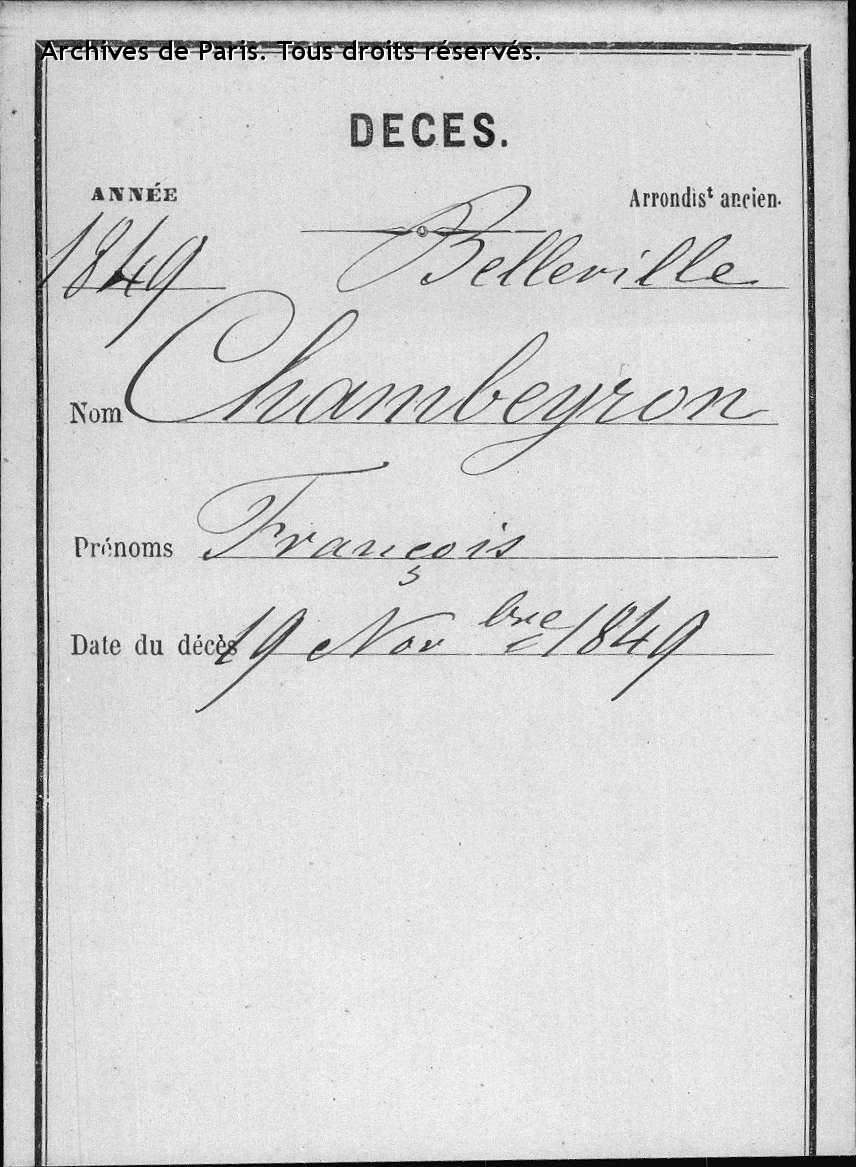 Archives de Paris. Tous droits réservés.
DECES.
ANNÉE Arrondis^t ancien.
1849 Belleville
Nom Chambeyron
Prénoms François
Date du décès 19 Nov^bre 1849